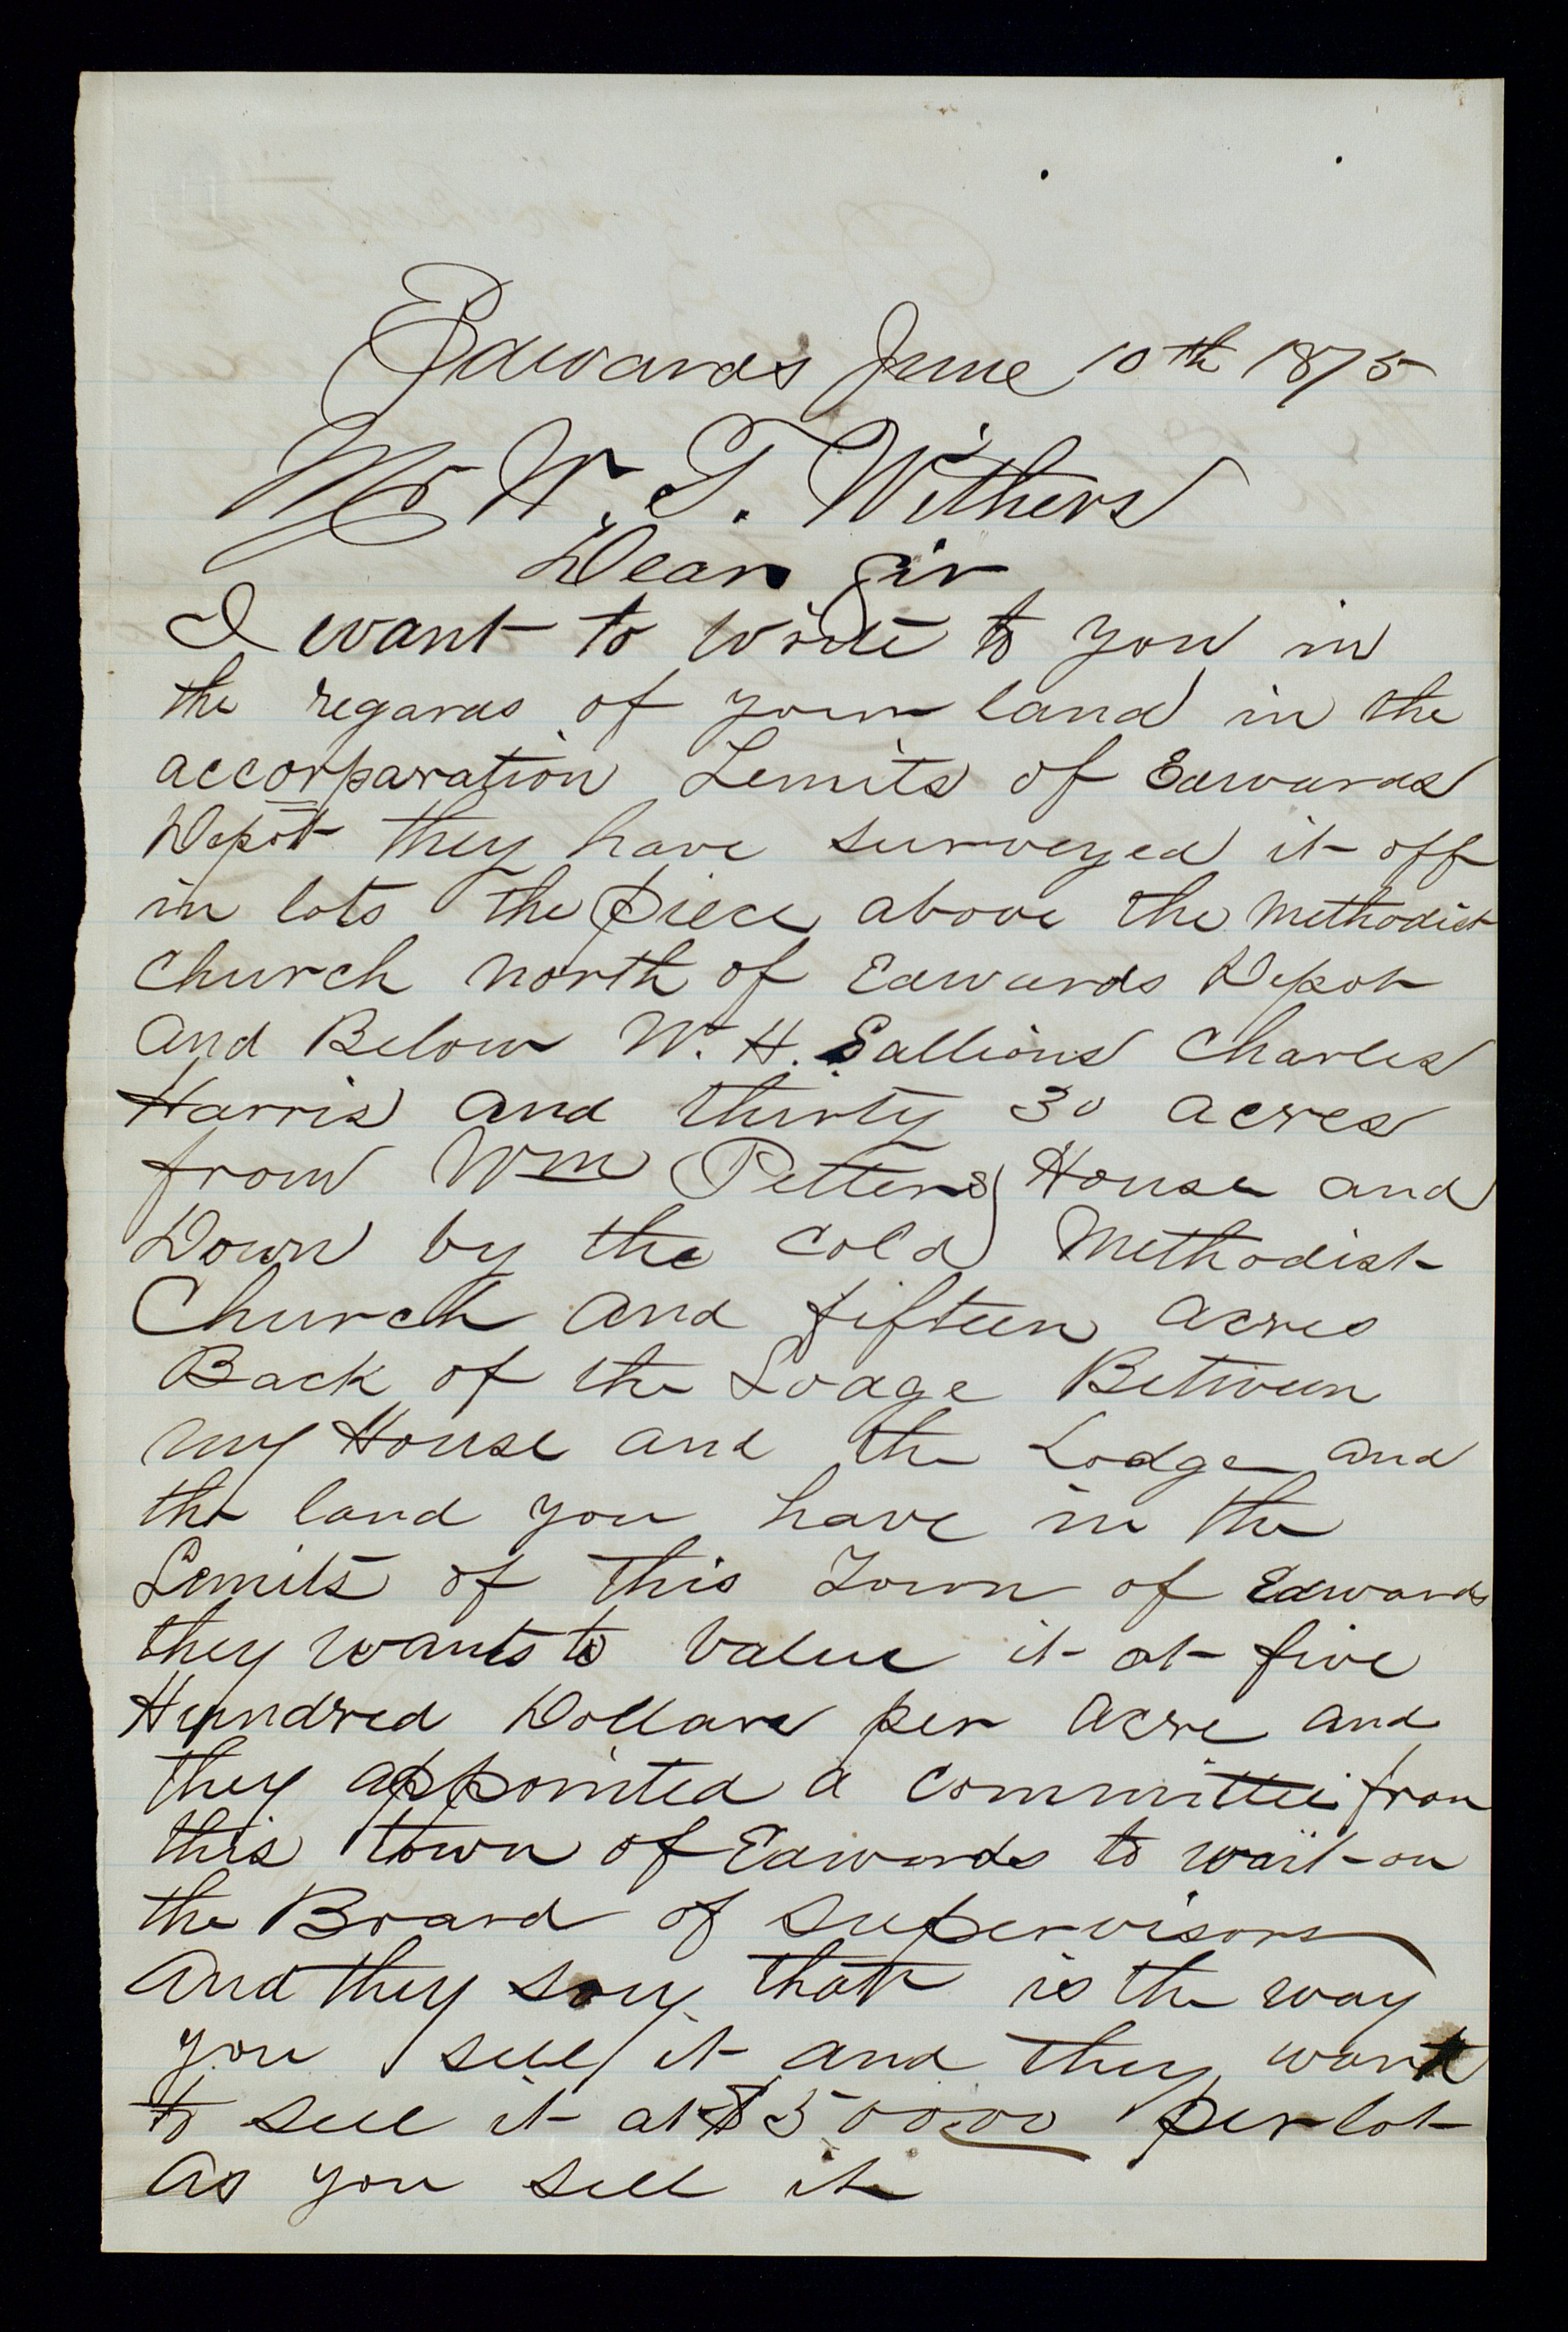 Edwards June 10th 1875
Mr W. T. Withers
Dear Sir
I want to write to you in
the regards of your land in the
accorparation Lemits of Edwards
Depot they have surveyed it off
in lots the piece above the Methodist
Church north of Edwards Depot
And Below W. H. Gallions Charles
Harris and thirty 30 acres
from Wm Petters House and
Down by the Cold Methodist
Church and fifteen acres
Back of the Lodge Between
my House and the Lodge and
the land you have in the
Lemits of this Town of Edwards
they wants to value it at five
Hundred Dollars per acre and
they appointed a committee from
this town of Edwards to wait on
the Board of supervisors
And they say that is the way
you sell it and they want
to sell it at $500.00 per lot
As you sell it